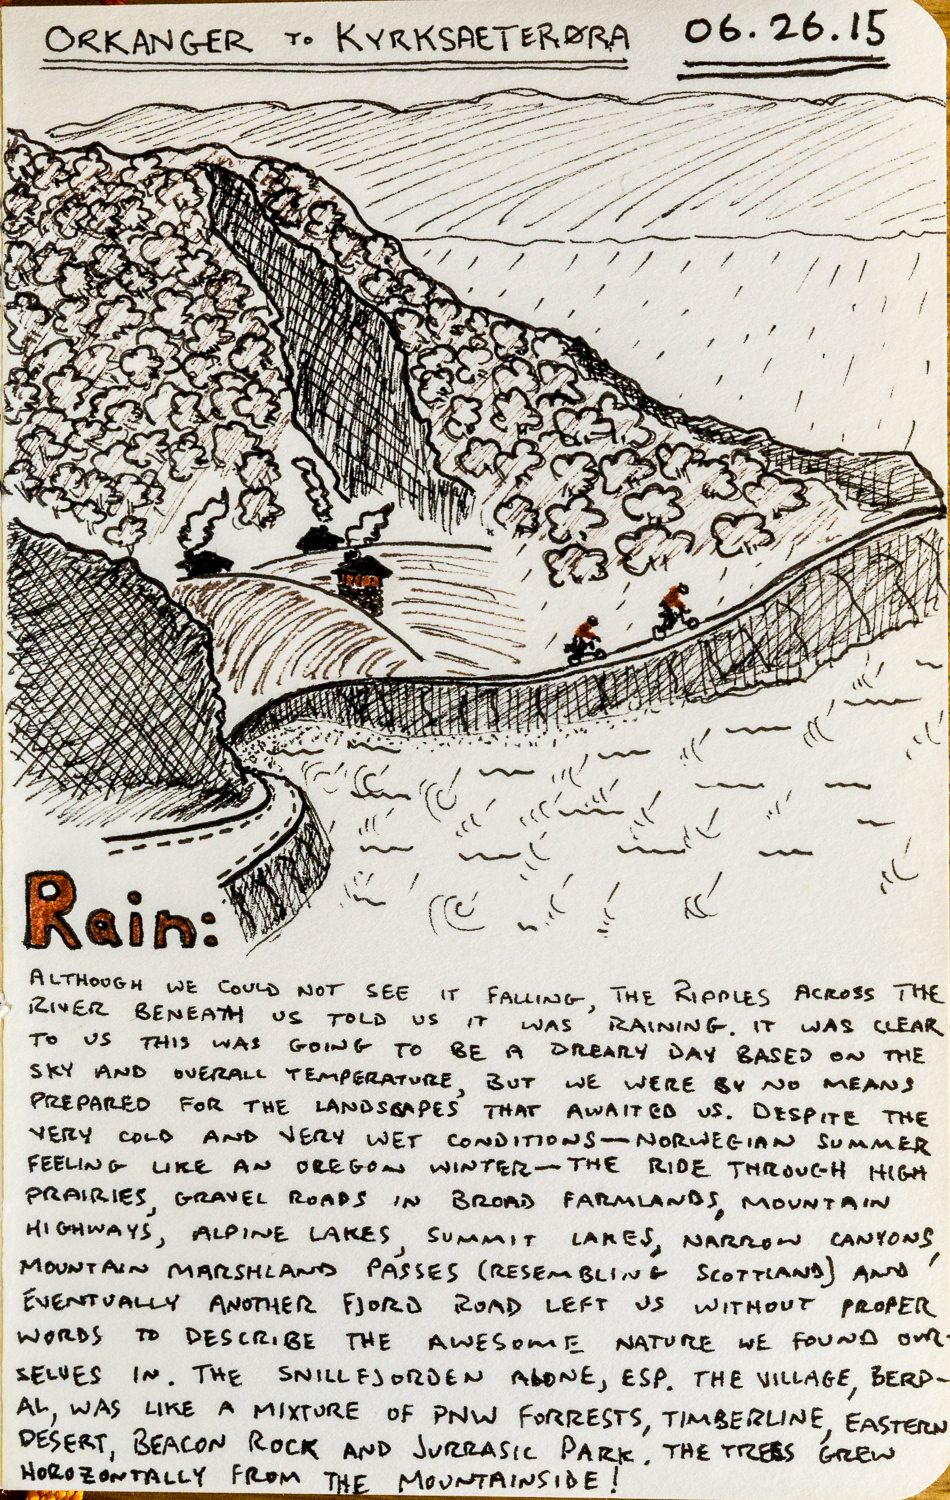 ORKANGER TO KYRKSAETERØRA 06.26.15
Rain:
ALTHOUGH WE COULD NOT SEE IT FALLING, THE RIPPLES ACROSS THE
RIVER BENEATH US TOLD US IT WAS RAINING. IT WAS CLEAR
TO US THIS WAS GOING TO BE A DREARY DAY BASED ON THE
SKY AND OVERALL TEMPERATURE, BUT WE WERE BY NO MEANS
PREPARED FOR THE LANDSCAPES THAT AWAITED US. DESPITE THE
VERY COLD AND VERY WET CONDITIONS—NORWEGIAN SUMMER
FEELING LIKE AN OREGON WINTER—THE RIDE THROUGH HIGH
PRAIRIES, GRAVEL ROADS IN BROAD FARMLANDS, MOUNTAIN
HIGHWAYS, ALPINE LAKES, SUMMIT LAKES, NARROW CANYONS,
MOUNTAIN MARSHLAND PASSES (RESEMBLING SCOTTLAND) AND
EVENTUALLY ANOTHER FJORD ROAD LEFT US WITHOUT PROPER
WORDS TO DESCRIBE THE AWESOME NATURE WE FOUND OUR-
SELVES IN. THE SNILLFJORDEN ALONE, ESP. THE VILLAGE, BERD-
AL, WAS LIKE A MIXTURE OF PNW FORRESTS, TIMBERLINE, EASTERN
DESERT, BEACON ROCK AND JURRASIC PARK. THE TREES GREW
HOROZONTALLY FROM THE MOUNTAINSIDE!